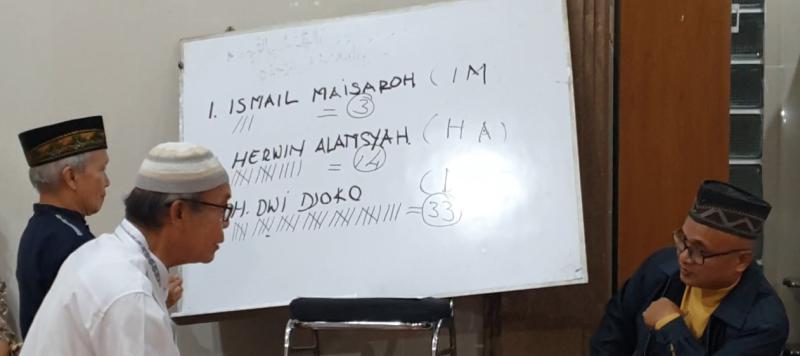 1. ISMAIL MAISAROH ( IM
/// = 3
HERWIN ALAMSYAH. ( H A )
= 14
H. DWI DJOKO (
= 33